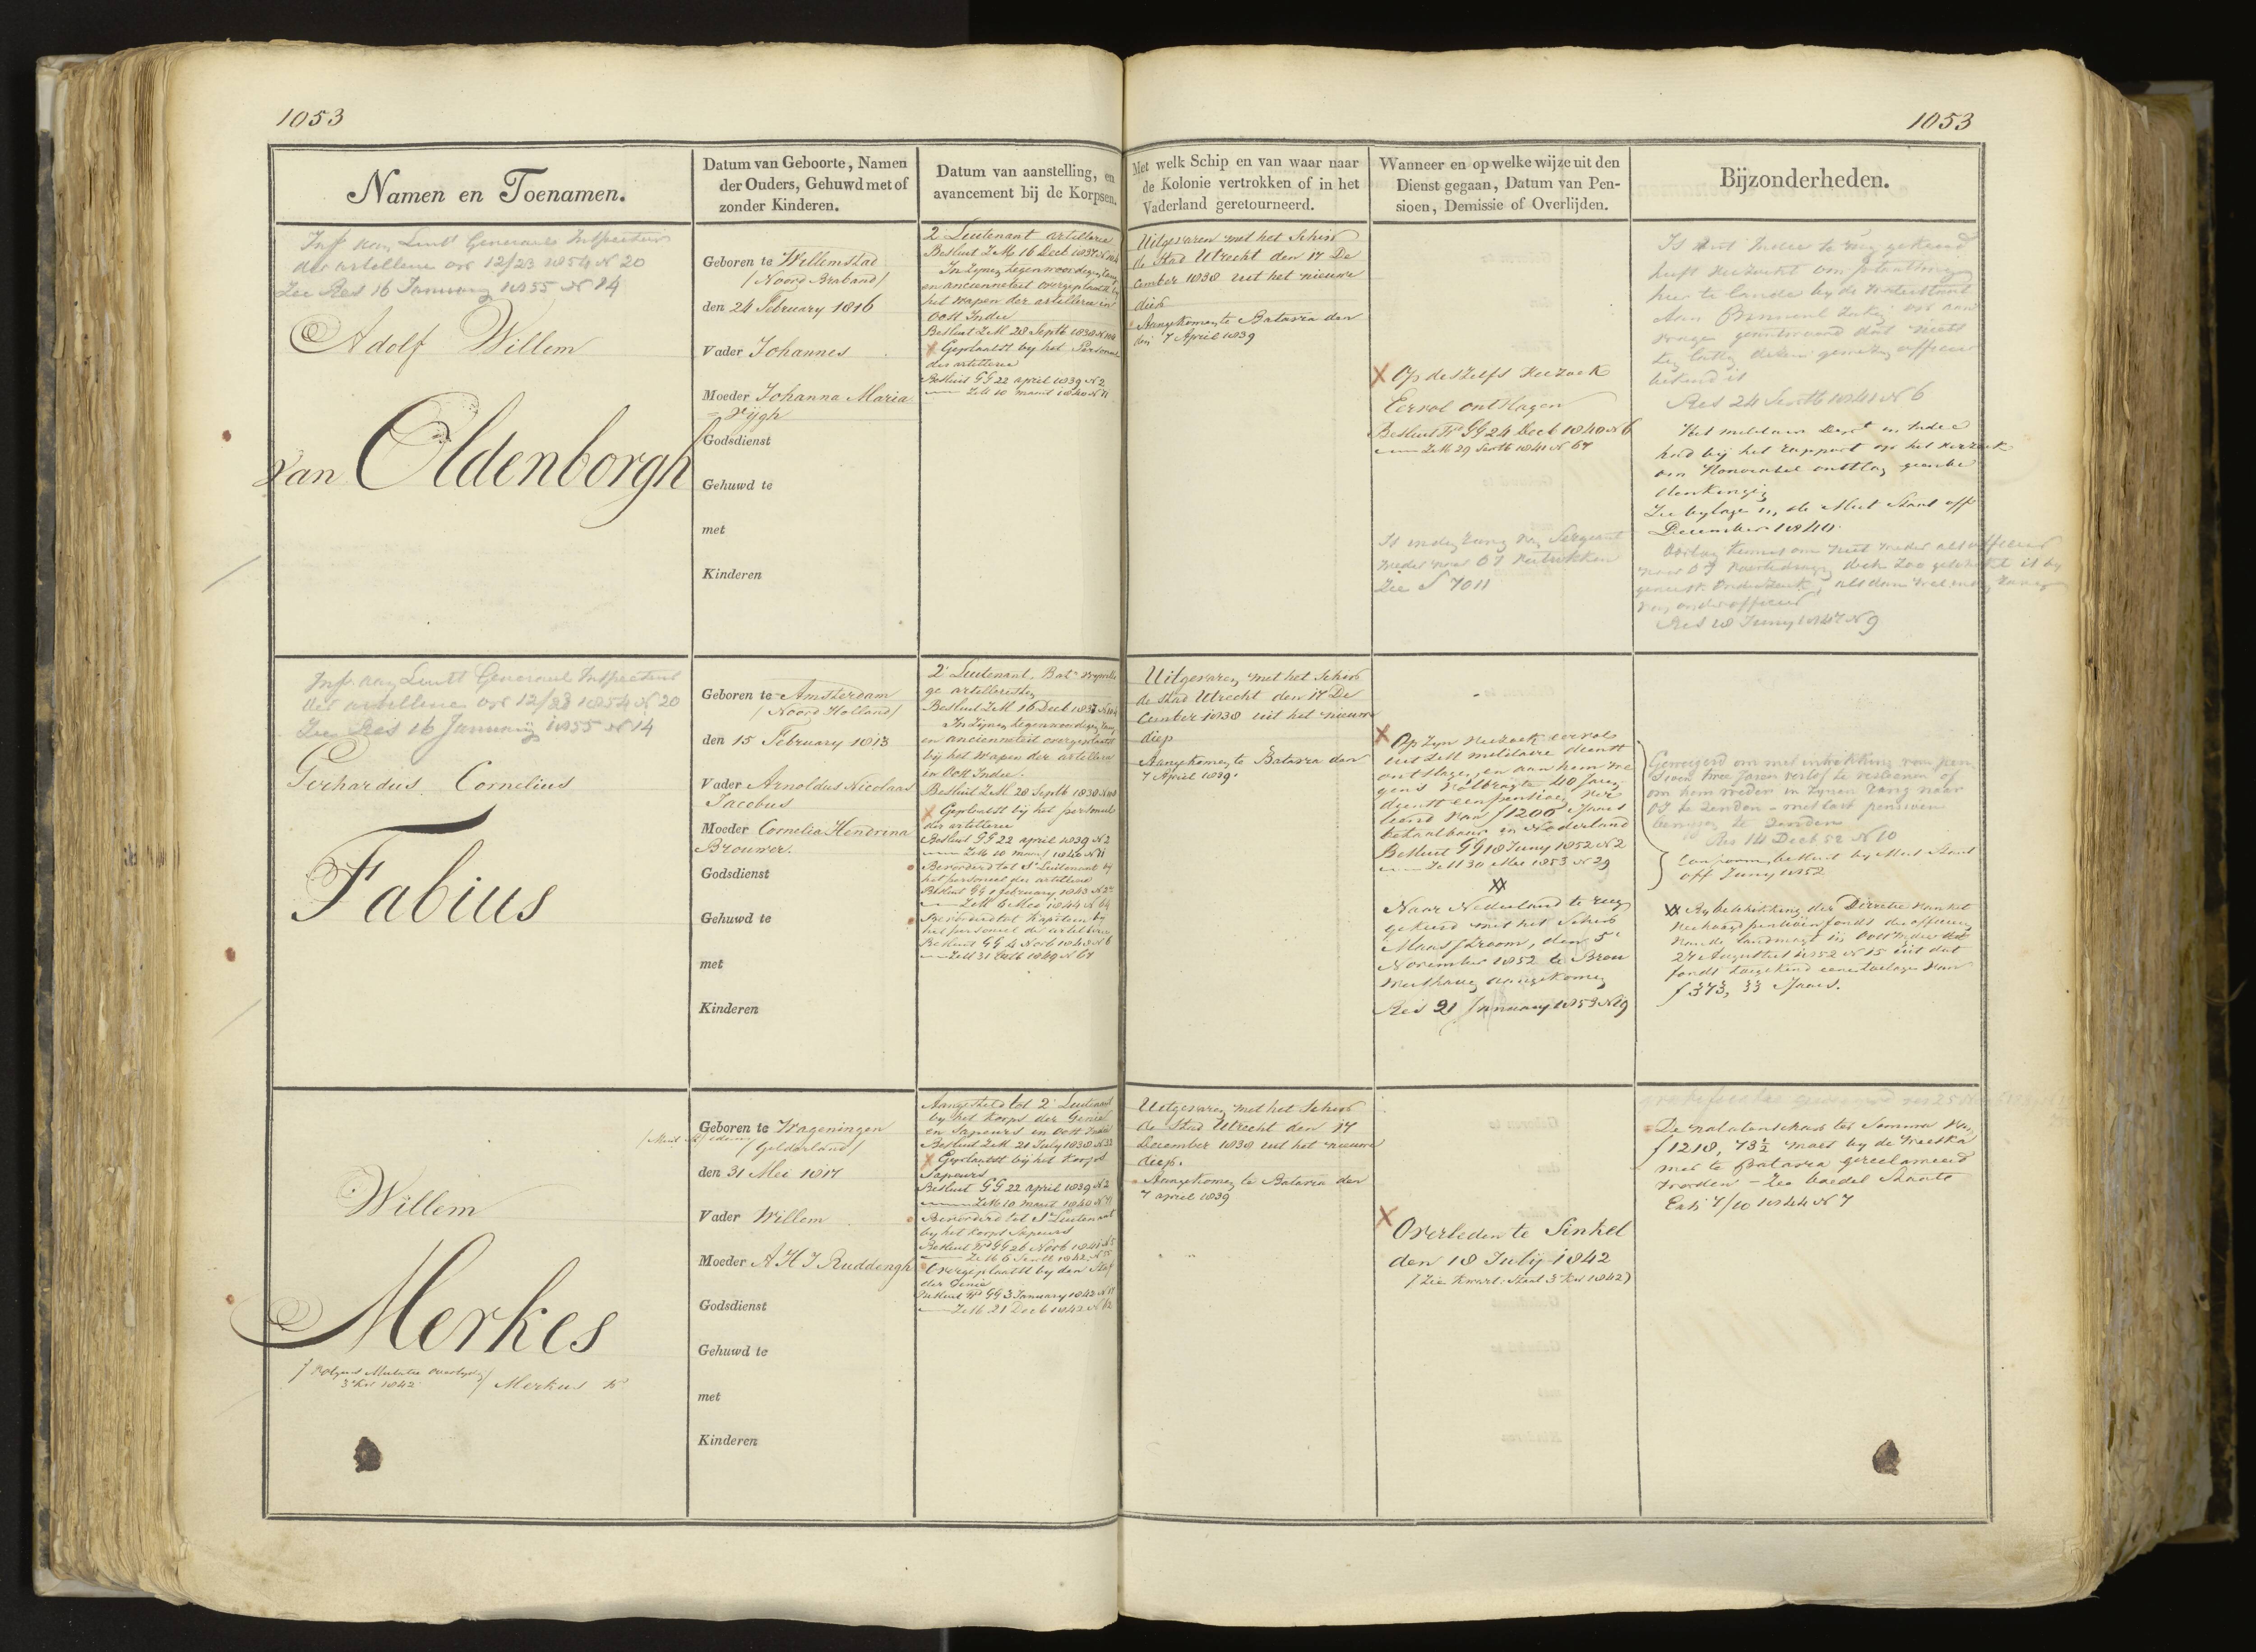 1053
1053
Namen en Toenamen.
Datum van Geboorte, Namen
der Ouders, Gehuwd met of
zonder Kinderen.
Datum van aanstelling, en
avancement bij de Korpsen.
Met welk Schip en van waar naar
de Kolonie vertrokken of in het
Vaderland geretourneerd.
Wanneer en op welke wijze uit den
Dienst gegaan, Datum van Pen-
sioen, Demissie of Overlijden.
Bijzonderheden.
Luitt Generaal Inspecteur
der artillerie 12/23 1854 N 20
Zie Res 16 January 1855 N 14
Adolf Willem
van Oldenborgh
Geboren te Willemstad
/Noord Braband/
den 24 February 1816
Vader Johannes
Moeder Johanna Maria
Godsdienst
Gehuwd te
met
Kinderen
2e Luitenant artillerie
Besluit ZM 16 Decb 1837 N 104
In zynen tegenwoordigen rang
en ancienneteit overgeplaatst by
het wapen der artillerie in
Oost Indie
Besluit ZM 28 Septb 1838 N 104
X Geplaatst by het Personeel
der artillerie
Besluit GG 22 april 1839 N 2
ZM 10 maart 1840 N 71
Uitgevaren met het Schip
de Stad Utrecht den 17 De
cember 1838 uit het nieuwe
diep
Aangekomen te Batavia den
7 April 1839
X Op deszelfs verzoek
Eervol ontslagen
Besluit GG 24 Decb 1840 N 6
ZM 29 Septb 1841 N 67
Is in den rang van Sergeant
weder naar OI vertrokken
Zie S 7011
Is uit Indie te rug gekeerd
heeft verzocht om
hier te lande by de Waterstaat
bekend is
Res 24 Septb 1841 N 6
Het militair Dept in Indie
had bij het rapport op het verzoek
om Honorabel ontslag
Zie bylage in de Mut Staat off
December 1840
Res 18 Juny 1847 N 9
Luitt Generaal Inspecteur
der artillerie 12/23 1854 N 20
Zie Res 16 January 1855 N 14
Gerhardus Cornelius
Fabius
Geboren te Amsterdam
/Noord Holland/
den 15 February 1813
Vader Arnoldus Nicolaas
Jacobus
Moeder Cornelia Hendrina
Brouwer.
Godsdienst
Gehuwd te
met
Kinderen
2e Luitenant, Batn
ge artilleristen
Besluit ZM 16 Decb 1837 N 104
In zynen tegenwoordigen rang
en ancienneteit overgeplaatst
bij het wapen der artillerie
in Oost Indie.
Besluit ZM 28 Septb 1838 N 104
X Geplaatst bij het personeel
der artillerie
Besluit GG 22 april 1839 N 2
ZM 10 maart 1840 N 71
Bevorderd tot 1e Luitenant by
het personeel der artillerie
Besluit GG 1 february 1843 N 2
ZM 6 Mei 1844 N 64
Bevorderd tot Kapitein by
het personeel der artillerie
Besluit GG 4 Novb 1848 N 6
ZM 31 1849 N 67
Uitgevaren met het Schip
de Stad Utrecht den 17 De
cember 1838 uit het nieuwe
diep
Aangekomen te Batavia den
7 April 1839.
X Op zyn verzoek eervol
uit ZM militaire dienst
ontslagen, en aan hem we
gens volbragte 40 Jaren
dienst een pensioen ver
leend van f 1200 'sJaars
betaalbaar in Nederland
Besluit GG 18 Juny 1852 N 2
ZM 30 Mei 1853 N 29
XX
Naar Nederland te rug
gekeerd met het Schip
Maasstroom, den 5e
November 1852 te Brou
wershaven aangekomen
Res 21 January 1853 N 19
Geweigerd om met intrekking van pen
sioen twee Jaren verlof te verleenen of
om hem weder in zynen rang naar
OI te zenden - met last pensioen
te zenden
Res 14 Decb 52 N 10
besluit by Mut Staat
off Juny 1852
XX By beschikking der Directie van het
pensioenfonds der officieren
van de landmagt in Oost Indie dd
24 Augustus 1852 N 15 uit dat
fonds toegekend eene toelage van
f 373,33 'sJaars.
Willem
Merkes
volgens Mutatie overlyden
3e Kwl 1842 / Merkus
Geboren te Wageningen
/Gelderland/
den 31 Mei 1817
Vader Willem
Moeder A H J Ruddengh
Godsdienst
Gehuwd te
met
Kinderen
Aangesteld tot 2e Luitenant
by het Korps der Genie
en Sapeurs in Oost Indie
Besluit ZM 21 July 1838 N 33
X Geplaatst bij het Korps
Sapeurs
Besluit GG 22 april 1839 N 2
ZM 10 maart 1840 N 71
Bevorderd tot 1e Luitenant
by het Korps Sapeurs
Besluit GG 26 Novb 1841 N 5
ZM 6 Septb 1842 N 55
Overgeplaatst by den Staf
der Genie
Besluit GG 3 January 1842 N 17
ZM 21 Decb 1842 N 62
Uitgevaren met het Schip
de Stad Utrecht den 17
December 1838 uit het nieuwe
diep.
Aangekomen te Batavia den
7 april 1839
X Overleden te Sinkel
den 18 July 1842
(Zie Kwart: Staat 3e Kwl 1842)
De nalatenschap ter Somma van
f 1218,73½ moet by de Weeska
mer te Batavia gereclameerd
worden - Zie boedel Staate
Exh 7/10 1844 N 7